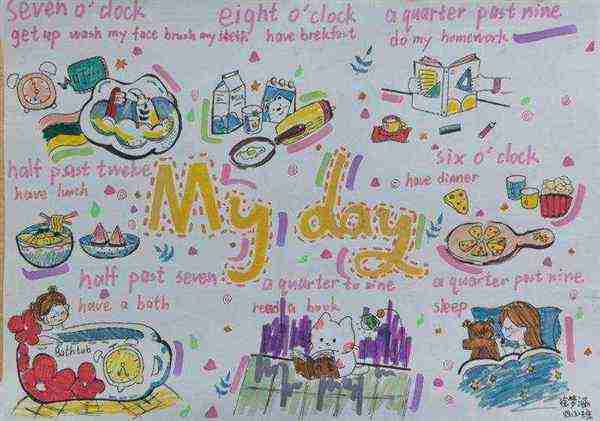 seven o'clock
get up wash my face brush my teeth
eight o'clock
have brekfast
a quarter past nine
do my homework
half past twelve
have lunch
My day
six o'clock
have dinner
half past seven
have a bath
Bathtub
a quarter to nine
read a book
a quarter past nine
sleep